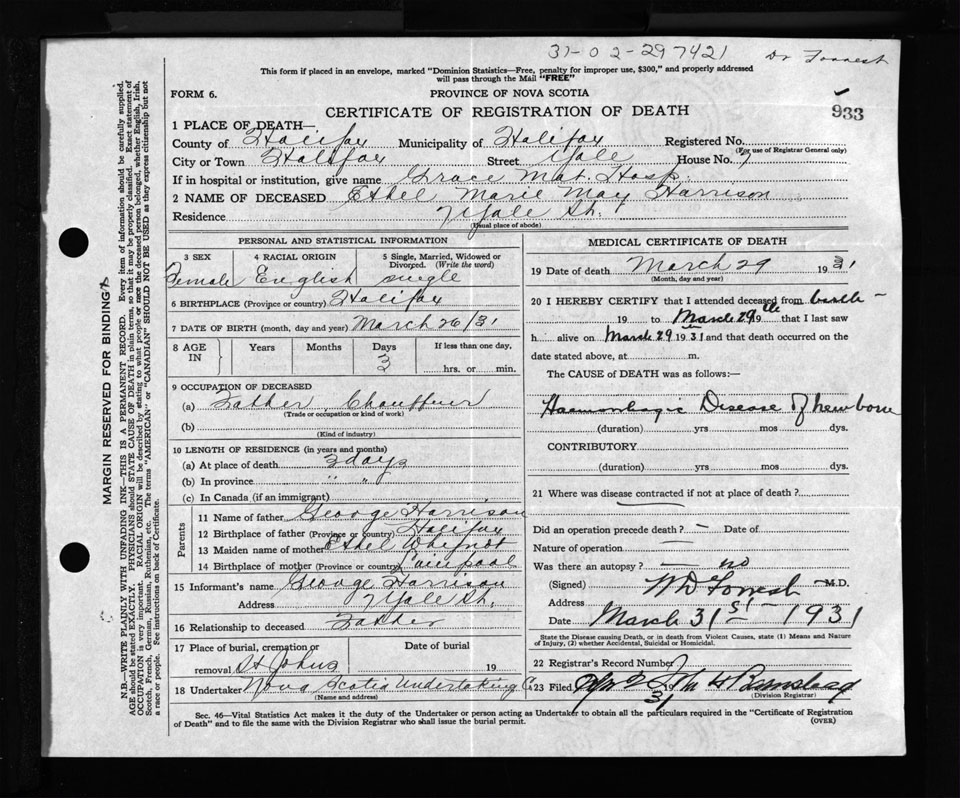 31-02-297421
Dr Forrest
This form if placed in an envelope, marked "Dominion Statistics—Free, penalty for improper use, $300," and properly addressed
will pass through the Mail "FREE"
FORM 6.
PROVINCE OF NOVA SCOTIA
CERTIFICATE OF REGISTRATION OF DEATH
933
1 PLACE OF DEATH—
County of Halifax Municipality of Halifax Registered No.
(For use of Registrar General only)
City or Town Halifax Street Yale House No. 7
If in hospital or institution, give name Grace Mat. Hosp.
2 NAME OF DECEASED Ethel Marie May Harrison
Residence 7 Yale St.
(Usual place of abode)
PERSONAL AND STATISTICAL INFORMATION
3 SEX 4 RACIAL ORIGIN 5 Single, Married, Widowed or
Divorced. (Write the word)
Female English single
6 BIRTHPLACE (Province or country) Halifax
7 DATE OF BIRTH (month, day and year) March 26/31
8 AGE IN Years Months Days If less than one day,
3 hrs. or min.
9 OCCUPATION OF DECEASED
(a) Father Chauffeur
(Trade or occupation or kind of work)
(b)
(Kind of industry)
10 LENGTH OF RESIDENCE (in years and months)
(a) At place of death 3 days
(b) In province " "
(c) In Canada (if an immigrant)
Parents
11 Name of father George Harrison
12 Birthplace of father (Province or country) Halifax
13 Maiden name of mother Ethel
14 Birthplace of mother (Province or country)
15 Informant's name George Harrison
Address 7 Yale St.
16 Relationship to deceased Father
17 Place of burial, cremation or Date of burial
removal St Johns 19
18 Undertaker Nova Scotia Undertaking Co
(Name and address)
MEDICAL CERTIFICATE OF DEATH
19 Date of death March 29 1931
(Month, day and year)
20 I HEREBY CERTIFY that I attended deceased from birth -
19 to March 29th 19 that I last saw
h er alive on March 29 1931 and that death occurred on the
date stated above, at m.
The CAUSE of DEATH was as follows:—
Haemorrhagic Disease of newborn
(duration) yrs mos dys.
CONTRIBUTORY
(duration) yrs. mos. dys.
21 Where was disease contracted if not at place of death?
Did an operation precede death? - Date of
Nature of operation —
Was there an autopsy? — no
(Signed) W D Forrest M.D.
Address
Date March 31st - 1931
State the Disease causing Death, or in death from Violent Causes, state (1) Means and Nature
of Injury, (2) whether Accidental, Suicidal or Homicidal.
22 Registrar's Record Number
23 Filed Apr 2 1931
(Division Registrar)
Sec. 46—Vital Statistics Act makes it the duty of the Undertaker or person acting as Undertaker to obtain all the particulars required in the "Certificate of Registration
of Death" and to file the same with the Division Registrar who shall issue the burial permit.
(OVER)
MARGIN RESERVED FOR BINDING
N.B.—WRITE PLAINLY WITH UNFADING INK—THIS IS A PERMANENT RECORD. Every item of information should be carefully supplied.
AGE should be stated EXACTLY. PHYSICIANS should STATE CAUSE OF DEATH in plain terms, so that it may be properly classified. Exact statement of
OCCUPATION is very important. RACIAL ORIGIN will be described by stating to what people or race the deceased person belonged, whether English, Irish,
Scotch, French, German, Russian, Ruthenian, etc. The terms "AMERICAN" or "CANADIAN" SHOULD NOT BE USED as they express citizenship but not
a race or people. See instructions on back of Certificate.